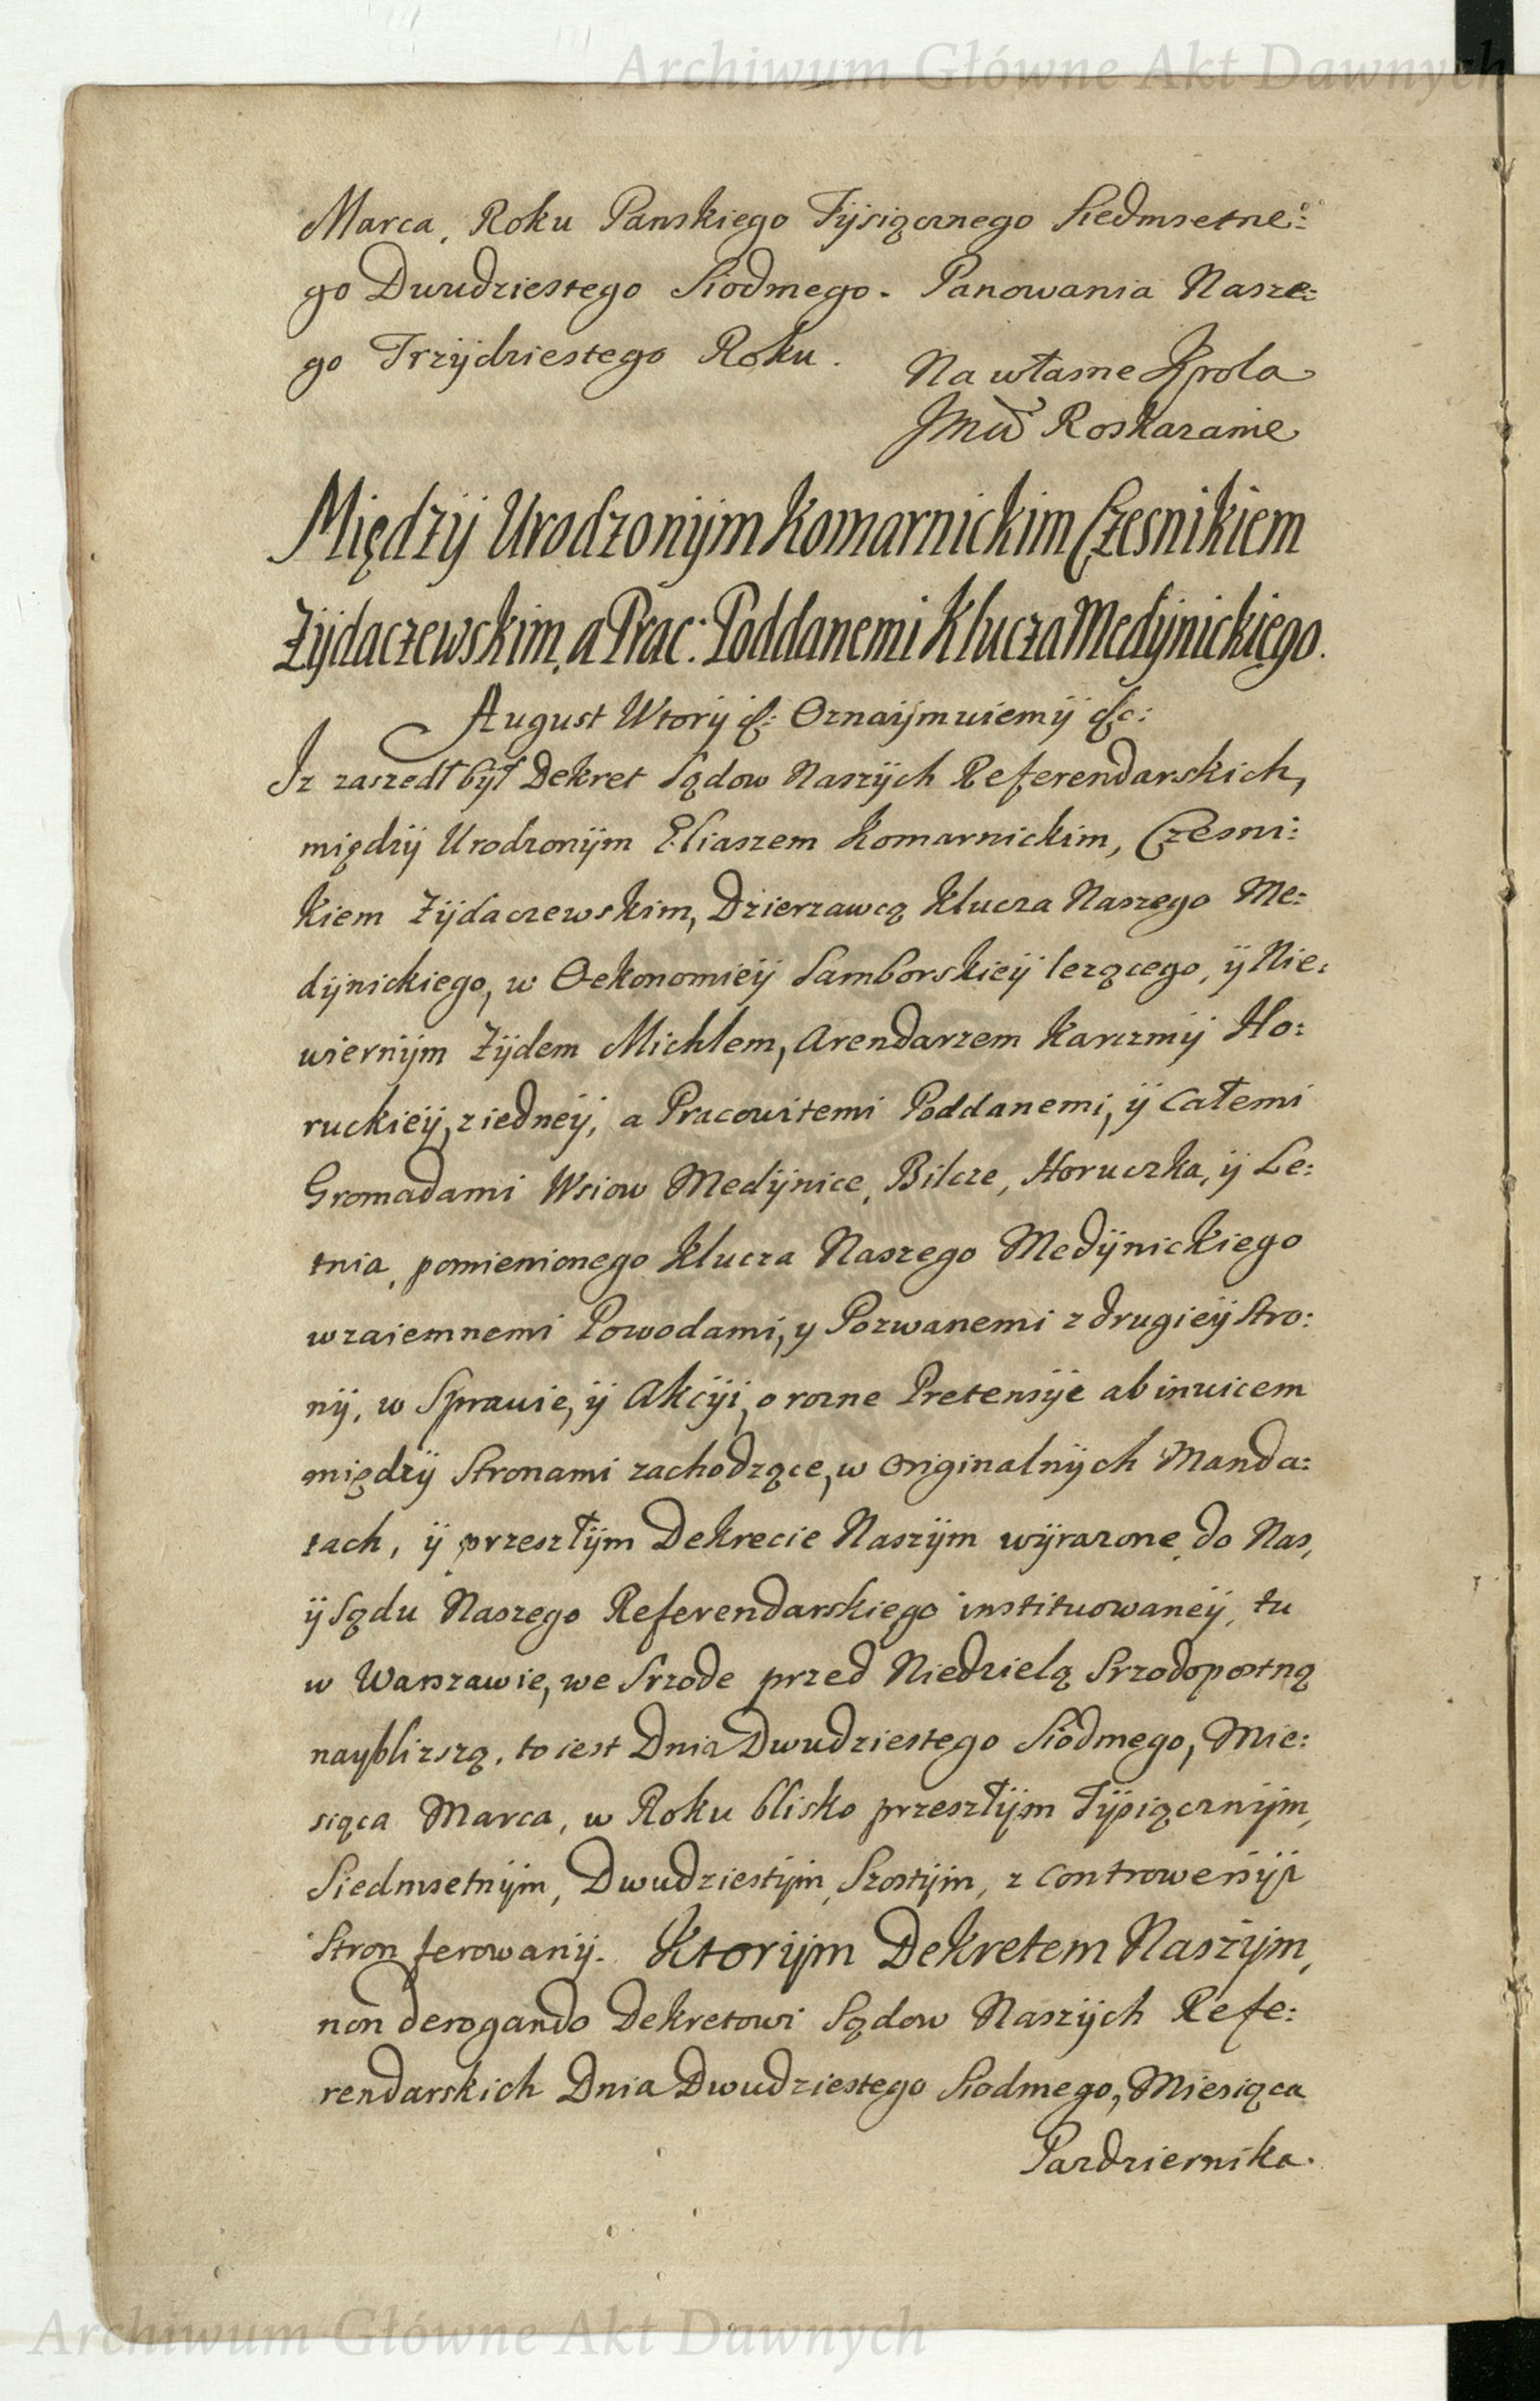 Archiwum Główne Akt Dawnych
Marca, Roku Panskiego Tysiącznego Siedmsetne:
go Dwudziestego Siodmego. Panowania Nasze:
go Trzydziestego Roku.
Na własne Krola
Jmci Roskazanie
Między Urodzonym Komarnickim Czesnikiem
Zydaczewskim, a Prac: Poddanemi Klucza Medynickiego.
August Wtory &: Oznaymuiemy &c:
Jz zaszedł był Dekret Sądow Naszych Referendarskich,
między Urodzonym Eliaszem Komarnickim, Czesni:
kiem Zydaczewskim, Dzierzawcą Klucza Naszego Me:
dynickiego, w Oekonomiey Samborskiey lezącego, y Nie:
wiernym Zydem Michlem, Arendarzem Karczmy Ho:
ruckiey, z iedney, a Pracowitemi Poddanemi, y Całemi
Gromadami Wsiow Medynice, Bilcze, Horuczka, y Le:
tnia, pomienionego Klucza Naszego Medynickiego
wzaiemnemi Powodami, y Pozwanemi z drugiey Stro:
ny, w Sprawie, y Akcyi, o rozne Pretensye ab invicem
między Stronami zachodzące, w Originalnych Manda:
tach, y przeszłym Dekrecie Naszym wyrazone, do Nas,
y Sądu Naszego Referendarskiego instituowaney, tu
w Warszawie, we Srzode przed Niedzielą Srzodopostną
nayblizszą, to iest Dnia Dwudziestego Siodmego, Mie:
siąca Marca, w Roku blisko przeszłym Tysiącznym,
Siedmsetnym, Dwudziestym, Szostym, z Controwersyi
Stron ferowany. Ktorym Dekretem Naszym,
non derogando Dekretowi Sądow Naszych Refe:
rendarskich Dnia Dwudziestego Siodmego, Miesiąca
Pazdziernika.
Archiwum Główne Akt Dawnych